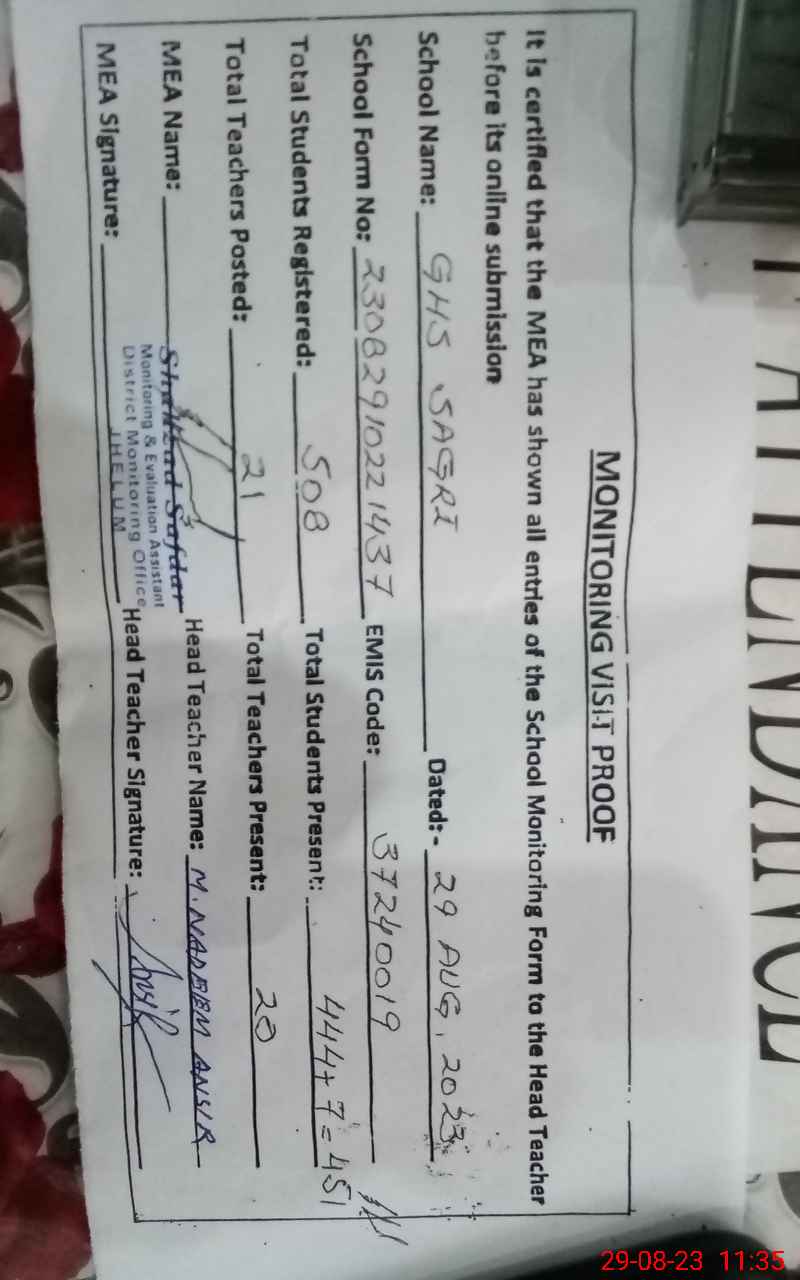 MONITORING VISIT PROOF
It is certified that the MEA has shown all entries of the School Monitoring Form to the Head Teacher
before its online submission
School Name: GHS SAGRI Dated:- 29 AUG, 2023
School Form No: 230829102214 37 EMIS Code: 37240019
Total Students Registered: 508 Total Students Present: 444+7=451
Total Teachers Posted: 21 Total Teachers Present: 20
MEA Name: Shahzad Safdar Head Teacher Name: M. NADEEM ANSIR
Monitoring & Evaluation Assistant
District Monitoring Office
JHELUM
MEA Signature: Head Teacher Signature: Ansir
ATTENDANCE
29-08-23 11:35